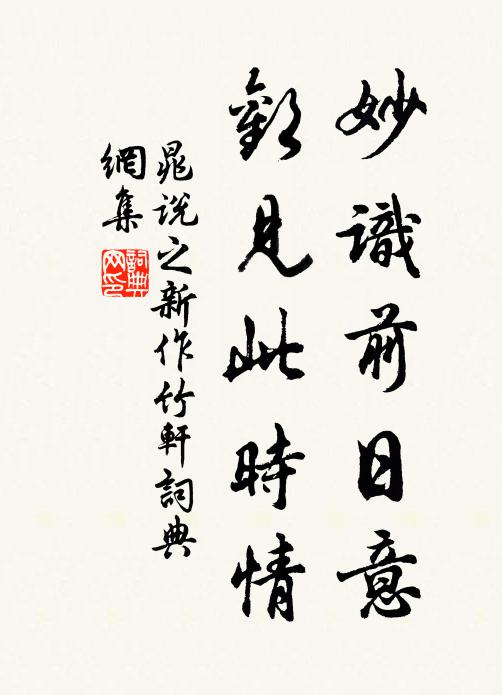 妙識前日意
歡見此時情
晁說之新作竹軒詞典
網集
詞典
网印